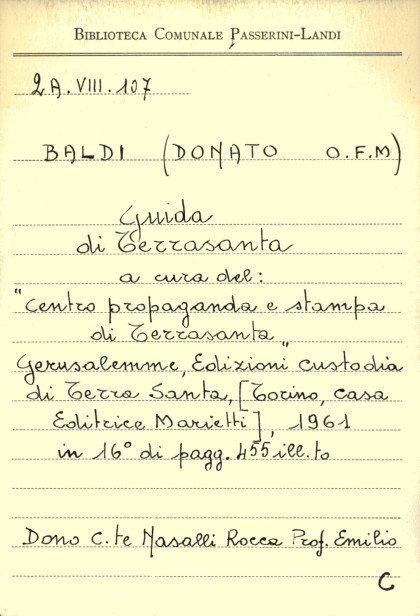 BIBLIOTECA COMUNALE PASSERINI-LANDI
2A.VIII.107
BALDI (DONATO O.F.M)
Guida
di Terrasanta
a cura del:
"Centro propaganda e stampa
di Terrasanta"
Gerusalemme, Edizioni custodia
di Terra Santa, [Torino, casa
Editrice Marietti], 1961
in 16° di pagg. 455 ill.to
Dono C.te Nasalli Rocca Prof. Emilio
C